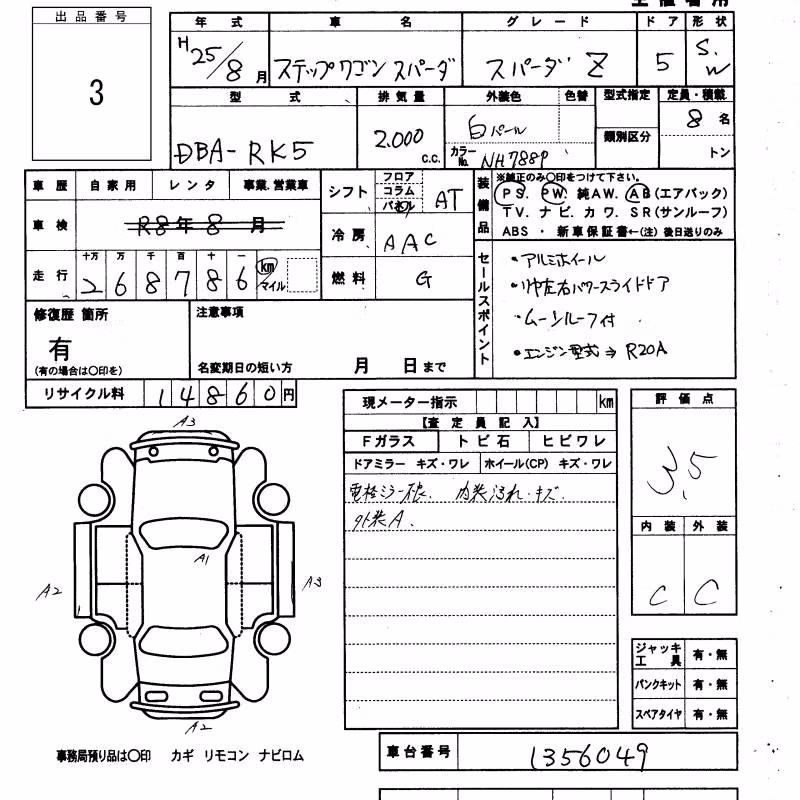 出品番号
3
年式 車名 グレード ドア 形状
H25/8月 ステップワゴン スパーダ スパーダ Z 5 S.W
型式 排気量 外装色 色替 型式指定 定員・積載
DBA-RK5 2.000 c.c. 白パール 類別区分 8名
カラーNo. NH788P トン
車歴 自家用 レンタ 事業.営業車
車検 R8年8月
走行 十万 万 千 百 十 一
268786 km マイル
シフト フロア コラム パネル AT
冷房 AAC
燃料 G
装備品
※純正のみ〇印をつけて下さい。
PS. PW. 純AW. AB(エアバック)
TV. ナビ. カワ. SR(サンルーフ)
ABS ・ 新車保証書←(注) 後日送りのみ
セールスポイント
・アルミホイール
・リヤ左右パワースライドドア
・ムーンルーフ付
・エンジン型式⇒R20A
修復歴 箇所
有
(有の場合は〇印を)
注意事項
名変期日の短い方 月 日まで
リサイクル料 14860円
現メーター指示 km
【査定員記入】
Fガラス トビ石 ヒビワレ
ドアミラー キズ・ワレ ホイール(CP) キズ・ワレ
内装汚れ・キズ.
外装A.
評価点
3.5
内装 外装
C C
A3
A1
A2 A3
A2
ジャッキ工具 有・無
パンクキット 有・無
スペアタイヤ 有・無
事務局預り品は〇印 カギ リモコン ナビロム
車台番号 1356049